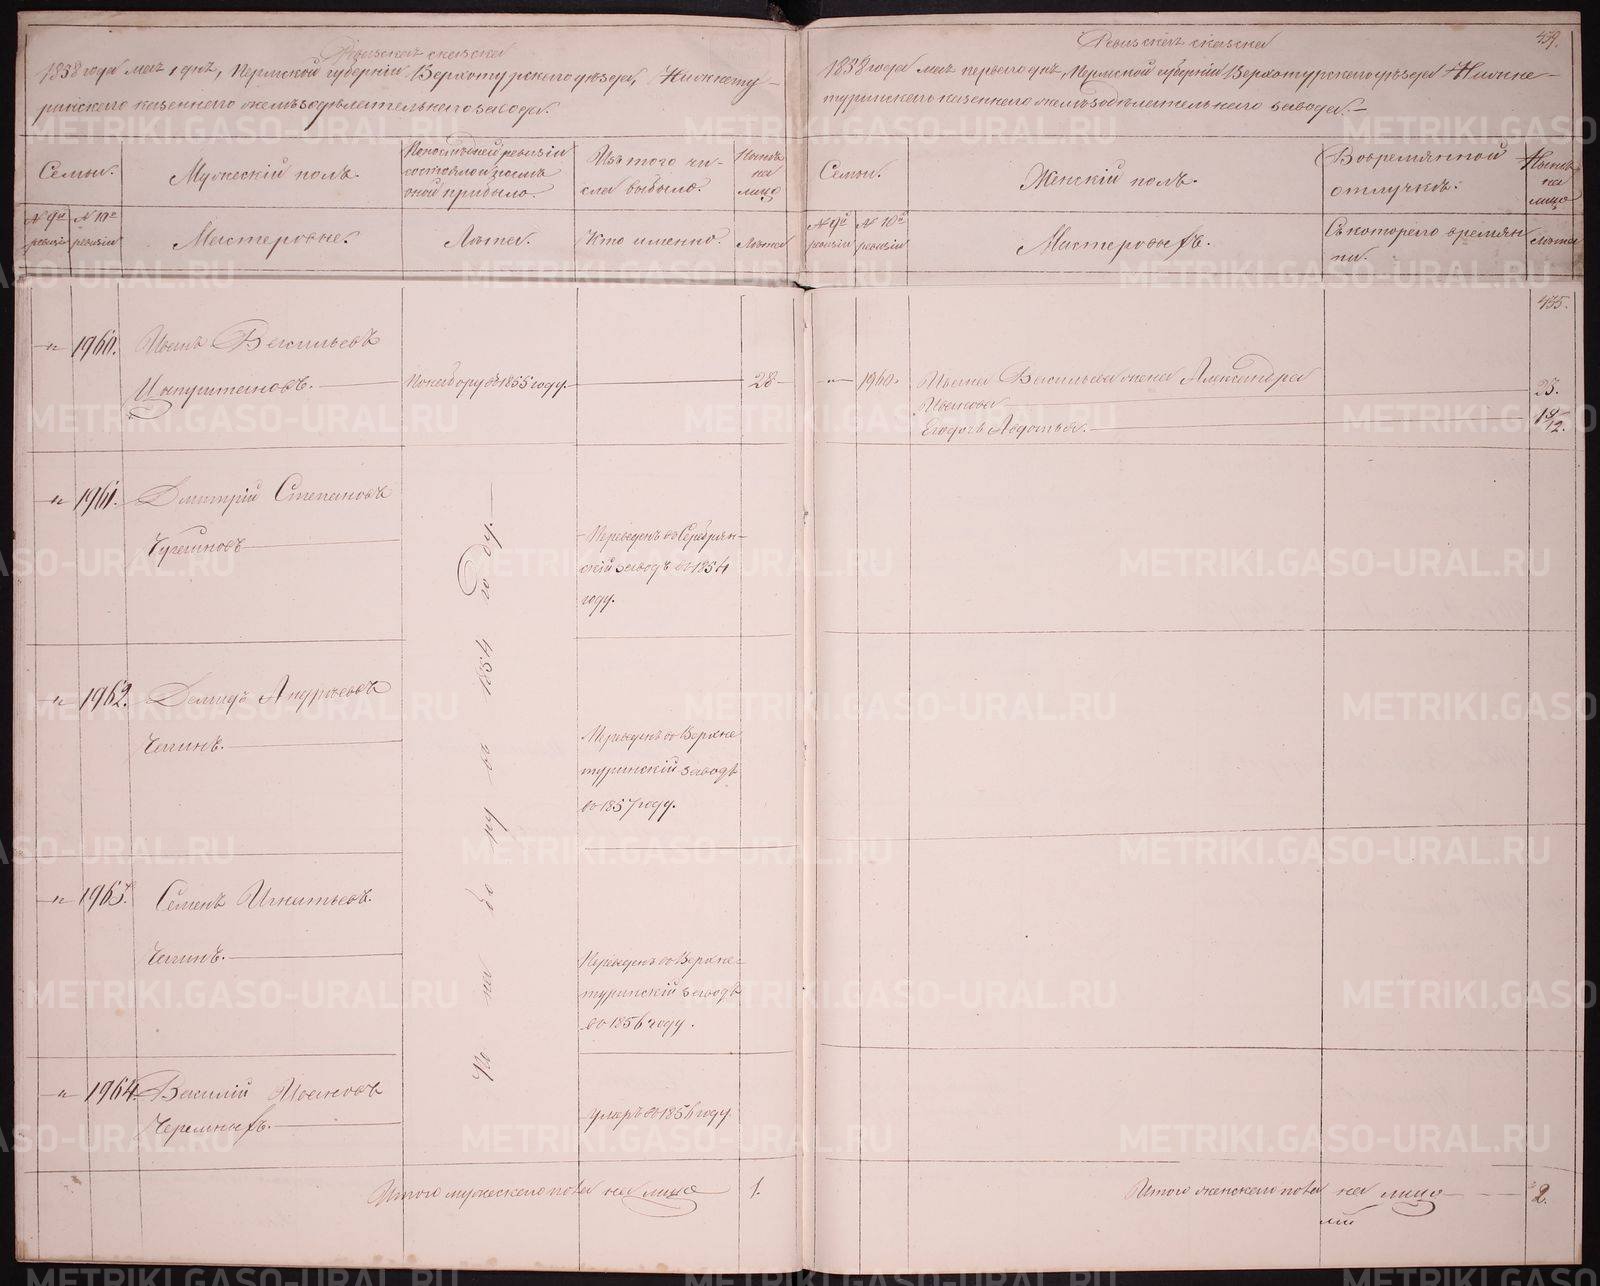 Ревизская сказка
1858 года мая 1 дня, Пермской губернии Верхотурскаго уѣзда, Нижнету-
ринскаго казеннаго желѣзодѣлательнаго завода.
Семьи.
Мужеский полъ.
По послѣдней ревизіи
состояло и послѣ
оной прибыло.
Изъ того чи-
сла выбыло.
Нынѣ
на
лицо
№ 9й ревизіи
№ 10й ревизіи
Мастеровые.
Лѣта.
Кто именно.
Лѣта
„ 1960. Иванъ Васильевъ
По набору въ 1855 году. 28
„ 1961. Дмитрій Степановъ
Переведенъ въ Серебрян-
скій заводъ въ 1854
году.
„ 1962. Демидъ Андреевъ
Чапинъ.
Переведенъ въ Верхне
туринскій заводъ
въ 1857 году.
„ 1963. Семенъ Игнатьевъ.
Чапинъ.
Переведенъ въ Верхне-
туринскій заводъ
въ 1856 году.
„ 1964. Василій Ивановъ
Черемныхъ.
умеръ въ 1856 году.
По набору въ 1854 году.
Итого мужескаго пола на лицо 1.
Ревизская сказка
459.
1858 года мая перваго дня, Пермской губернии Верхотурскаго уѣзда Нижне-
туринскаго казеннаго желѣзодѣлательнаго завода.
Семьи.
Женскій полъ.
Во временной
отлучкѣ.
Нынѣ
на
лицо
№ 9й ревизіи
№ 10й ревизіи
Мастеровыхъ.
Съ котораго времян
ни.
Лѣта
435.
„ 1960. Ивана Васильева жена Александра
Иванова 23.
дочь Авдотья. 10/12.
Итого женскаго пола на лицо 2.
METRIKI.GASO-URAL.RU